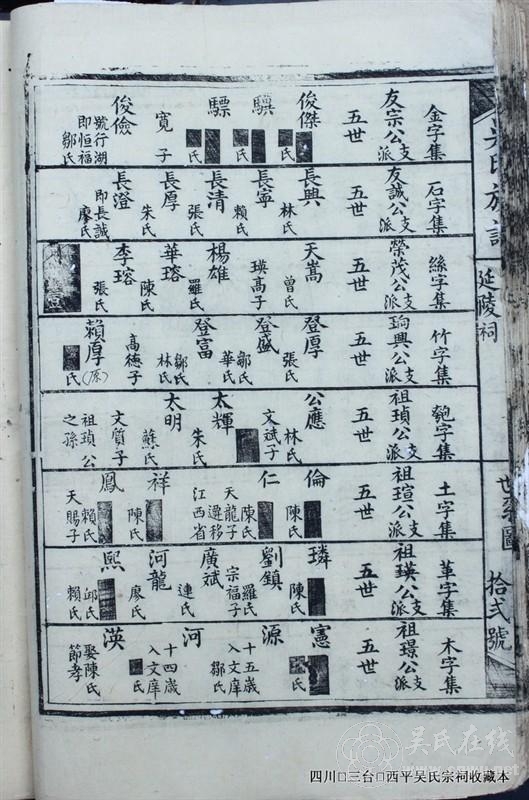 吳氏族譜
延陵祠
世系圖
拾弍號
金字集
友宗公支派
五世
俊傑 氏
驥 氏
驃 氏
寬子
俊儉 號行湖 即恒福 鄒氏
石字集
友誠公支派
五世
長興 林氏
長寧 賴氏
長清 張氏
長厚 朱氏
長澄 即長誠 廖氏
絲字集
榮茂公支派
五世
天嵩 曾氏
瑛高子
楊雄 羅氏
華瑢 陳氏
李瑢 張氏
竹字集
珦興公支派
五世
登厚 張氏
登盛 鄒氏 華氏
登富 鄒氏 林氏
高德子
賴厚 氏
匏字集
祖瑱公支派
五世
公應 林氏
文斌子
太輝 朱氏
太明 蘇氏
文質子
祖瑱公之孫
土字集
祖瑄公支派
五世
倫 陳氏
仁 陳氏
天龍子 遷移江西省
祥 陳氏
鳳 賴氏
天賜子
革字集
祖瑛公支派
五世
璘 陳氏
劉鎮 羅氏
宗福子
廣斌 連氏
河龍 廖氏
熙 邱氏 賴氏
木字集
祖璟公支派
五世
憲 氏
源 十五歲入文庠 鄒氏
河 十四歲入文庠 氏
渶 娶陳氏 節孝
四川□三台□西平吴氏宗祠收藏本
吴氏在线